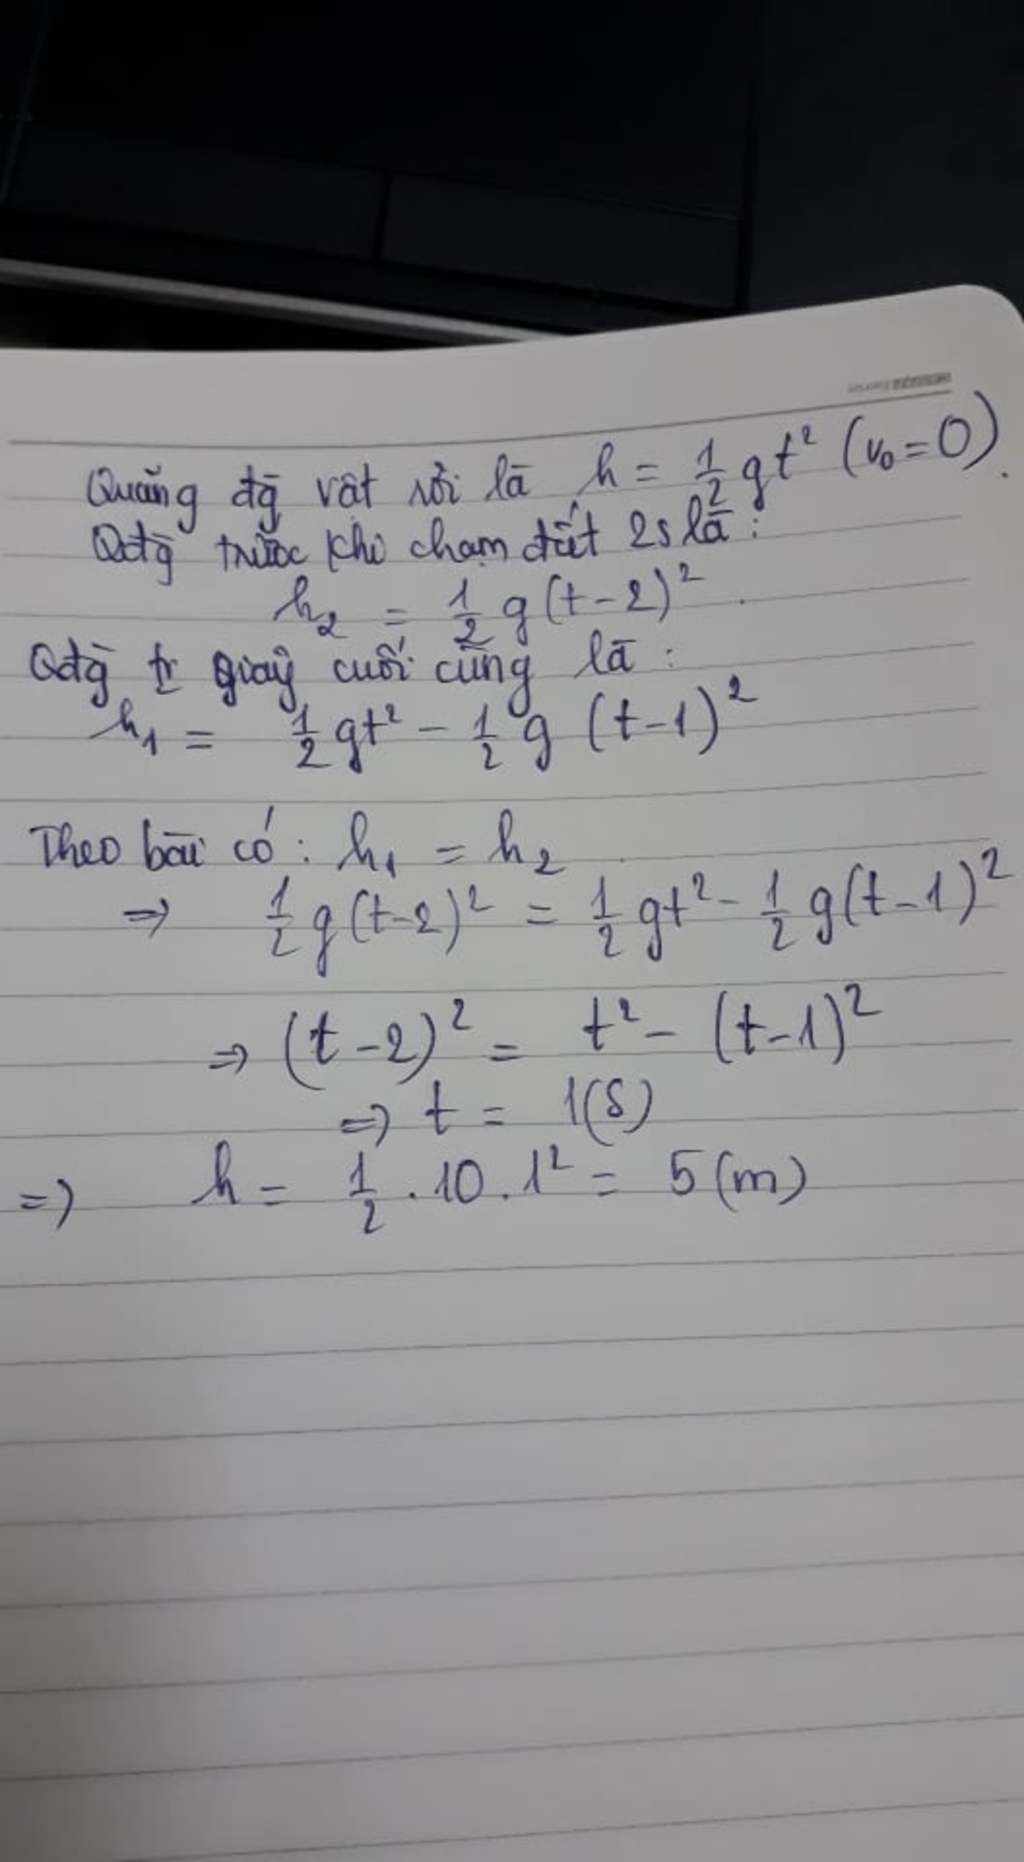 Quãng đg vật rơi là h = 1/2 gt² (v₀ = 0).
Qđg trước khi chạm đất 2s là:
h₂ = 1/2 g(t-2)².
Qđg tr giây cuối cùng là:
h₁ = 1/2 gt² - 1/2 g (t-1)²
Theo bài có: h₁ = h₂
=> 1/2 g(t-2)² = 1/2 gt² - 1/2 g(t-1)²
=> (t-2)² = t² - (t-1)²
=> t = 1(s)
=> h = 1/2 . 10 . 1² = 5 (m)